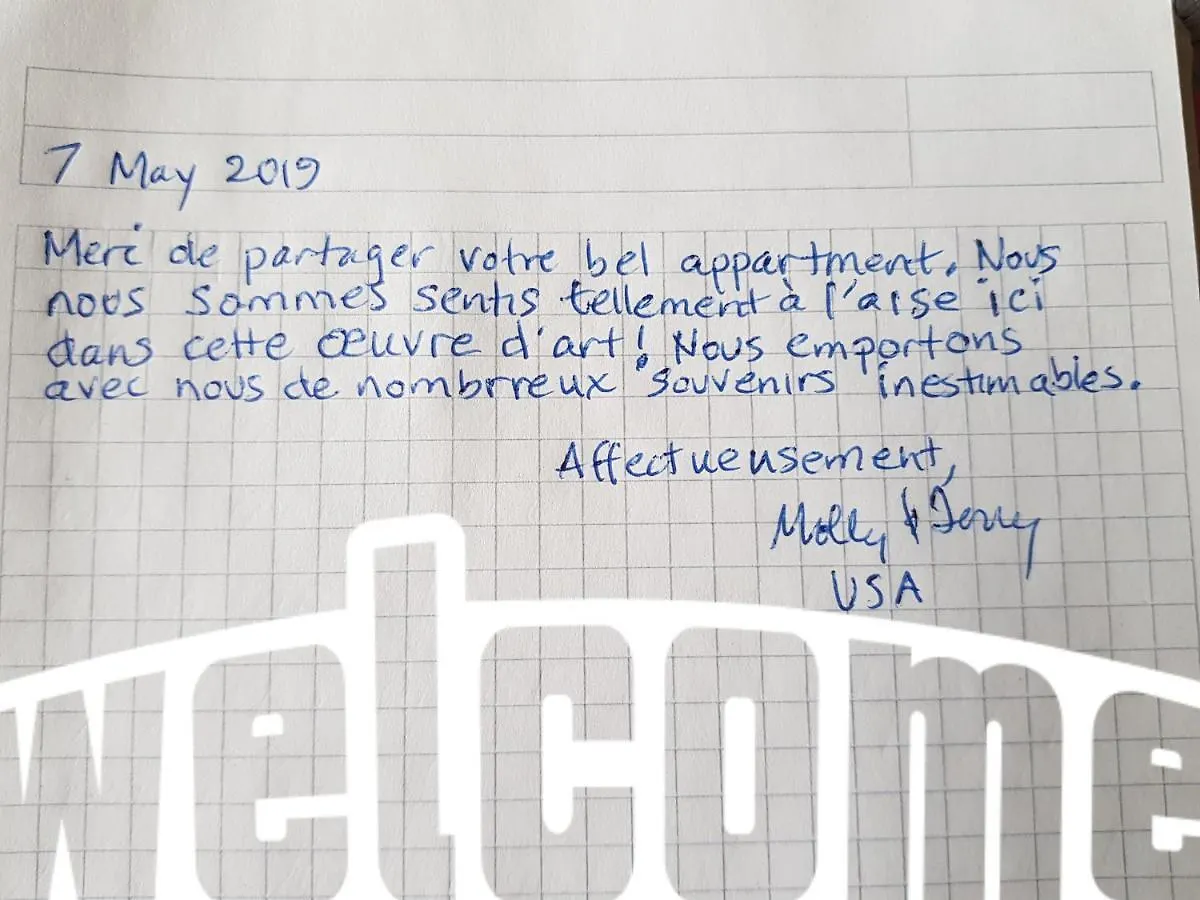 7 May 2019
Merci de partager votre bel appartment. Nous
nous sommes sentis tellement à l'aise ici
dans cette œuvre d'art! Nous emportons
avec nous de nombrreux souvenirs inestimables.
Affectueusement,
Molly & Jerry
USA
welcome